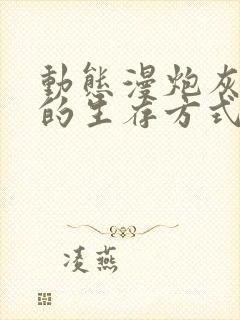 動態漫炮灰
的生存方式
凌燕